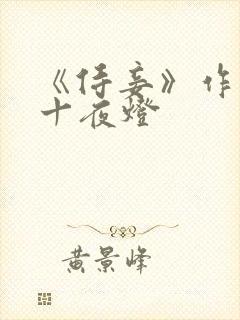 《侍妾》作
十夜燈
黄景峰